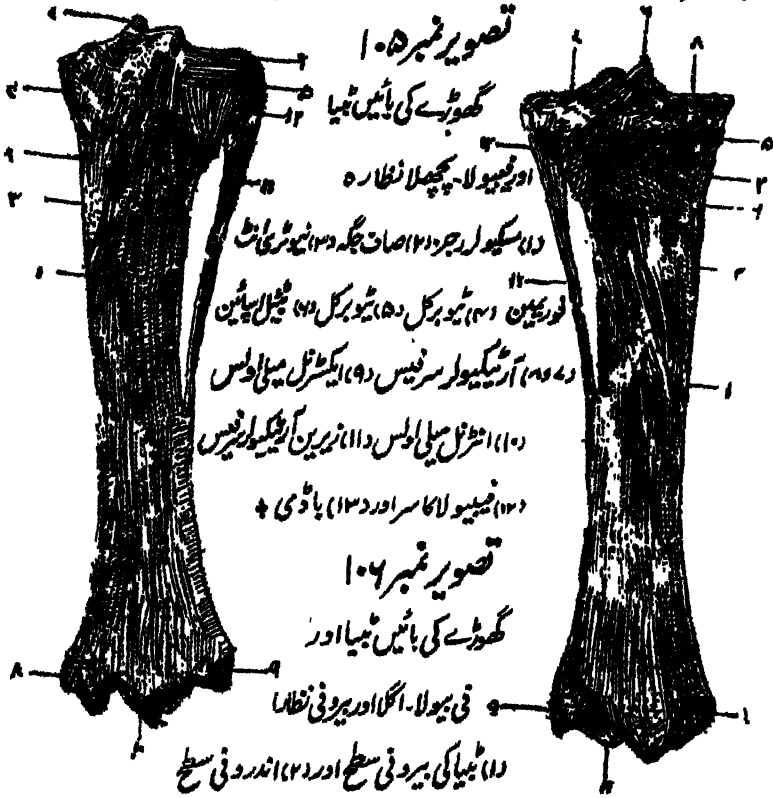 تصویر نمبر ۱۰۵
گھوڑے کی بائیں ٹبیا
اور فیبیولا۔ پچھلا نظارہ
(۱) سکیولر رجز (۲) صاف جگہ (۳) نیوٹری انٹ
فوریمین (۴) ٹیوبرکل (۵) ٹیوبرکل (۶) ٹیبیل سپائین
(۷ و ۸) آرٹیکیولر سرفیس (۹) ایکسٹرنل میلی اولس
(۱۰) انٹرنل میلی اولس (۱۱) زیرین آرٹیکیولر سرفیس
(۱۲) فیبیولا کا سر اور (۱۳) باڈی +
تصویر نمبر ۱۰۶
گھوڑے کی بائیں ٹبیا اور
فی بیولا۔ اگلا اور بیرونی نظارا
(۱) ٹبیا کی بیرونی سطح اور (۲) اندرونی سطح